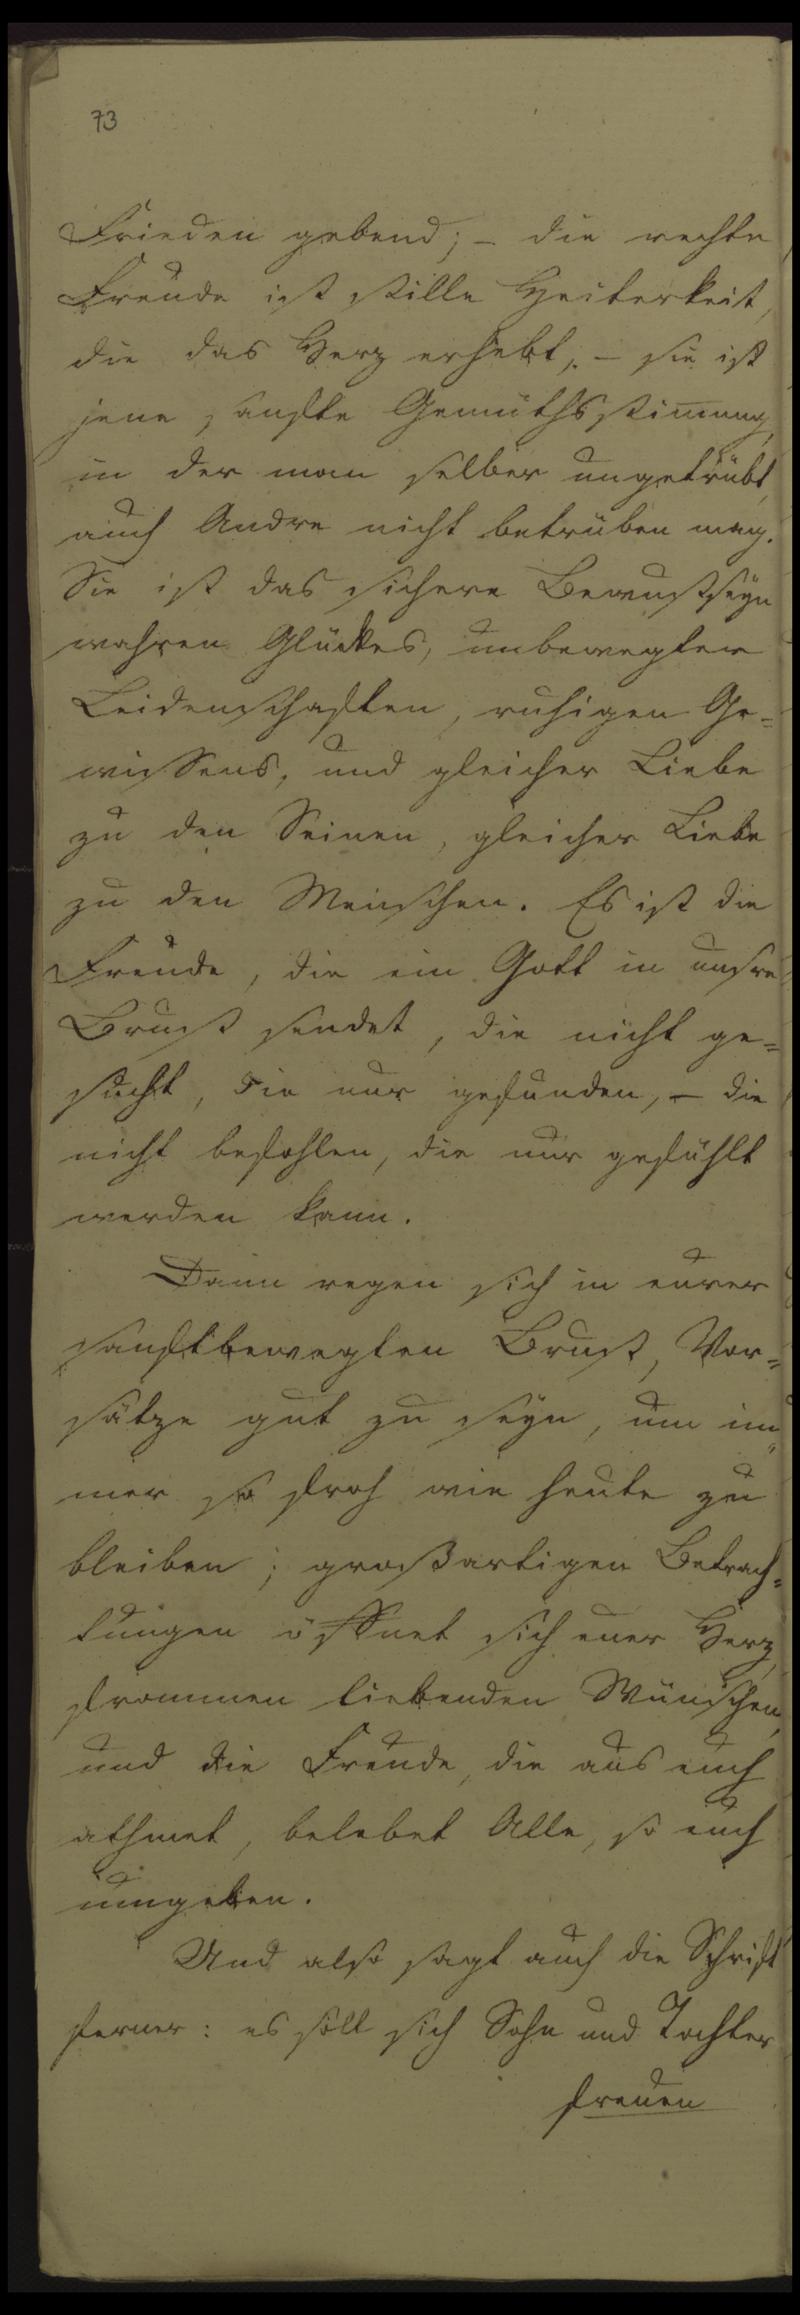 73
Frieden gebend; – die rechte
Freude ist stille Heiterkeit,
die das Herz erhebt, – sie ist
jene sanfte Gemüthsstimung,
in der man selber ungetrübt,
auch Andre nicht betrüben mag.
Sie ist das sichere Bewustseyn
wahren Glückes, unbewegter
Leidenschaften, ruhigen Ge=
wissens, und gleicher Liebe
zu den Seinen, gleicher Liebe
zu den Menschen. Es ist die
Freude, die ein Gott in unsre
Brust sendet, die nicht ge=
sucht, die nur gefunden, – die
nicht befohlen, die nur gefühlt
werden kann.
Dann regen sich in eurer
sanftbewegten Brust, Vor=
sätze gut zu seyn, um im=
mer so froh wie heute zu
bleiben; großartigen Betrach=
tungen öffnet sich euer Herz,
frommen liebenden Wünschen,
und die Freude, die aus euch
athmet, belebet Alle, so euch
umgeben.
Und also sagt auch die Schrift
ferner: es soll sich Sohn und Tochter
freuen